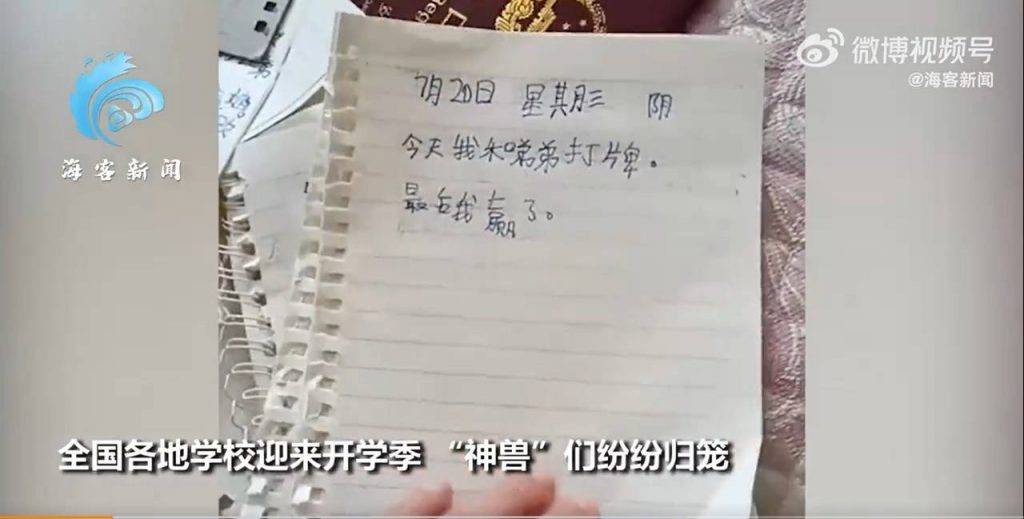 微博视频号
@海客新闻
海客新闻
7月20日 星其月三 阴
今天我和弟弟打牌。
最后我赢了。
全国各地学校迎来开学季 “神兽”们纷纷归笼